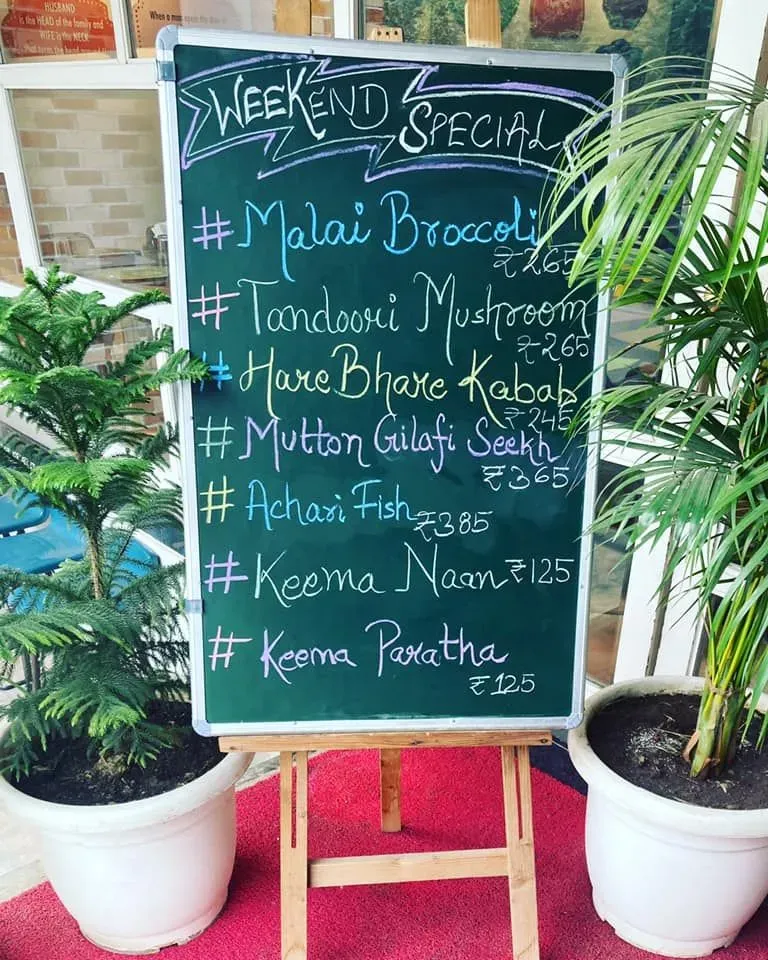 HUSBAND
is the HEAD of the family and
WIFE is the NECK
When a man open the
WEEKEND SPECIAL
# Malai Broccoli
₹265
# Tandoori Mushroom
₹265
# Hare Bhare Kabab
₹245
# Mutton Gilafi Seekh
₹365
# Achari Fish ₹385
# Keema Naan ₹125
# Keema Paratha
₹125